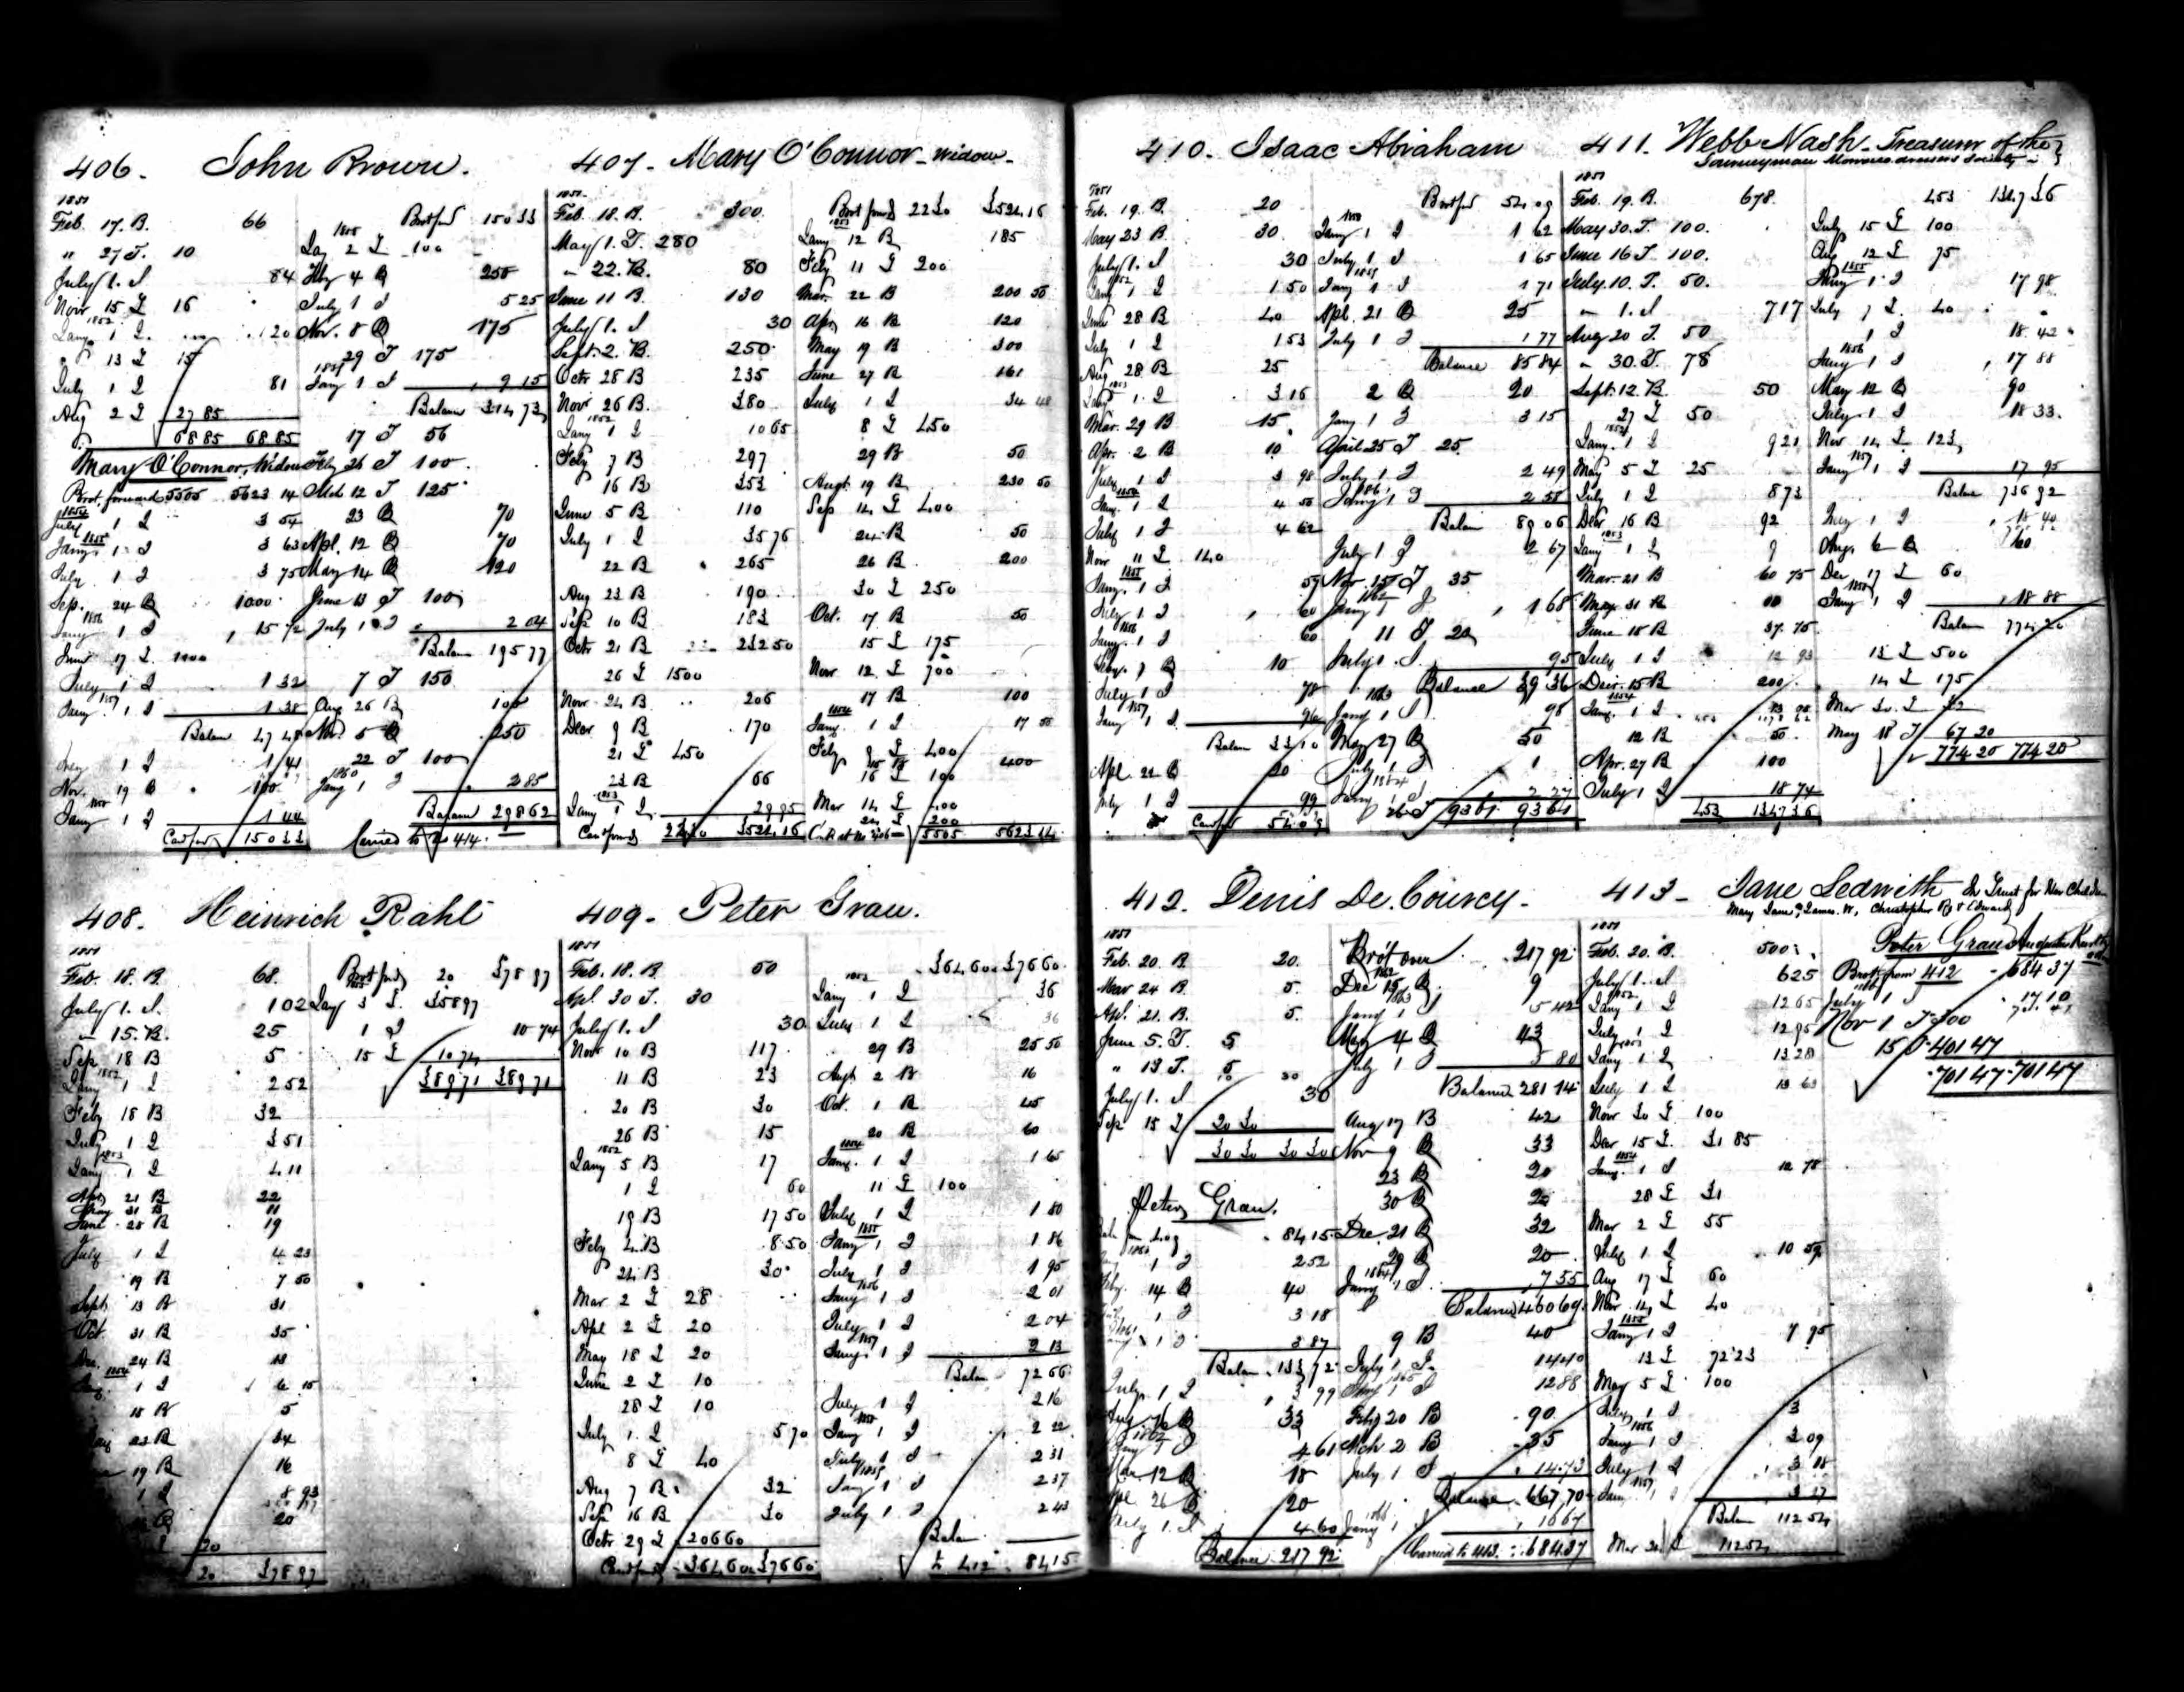 406. John Brown.
1851
Feb. 17. B. 66
" 27 T. 10
July 1. I 84
Novr 15 T 16
1852
Jany 1 I. 1 20
" 13 T 15
July 1 I 81
Aug 2 T 2785
6885 6885
Mary O'Connor, Widow
Brot. forward 5505 5623 14
1854
July 1 I 3 54
1855
Jany. 1 I 3 63
July 1 I 3 75
Sep. 24 B 1000
1856
Jany 1 I 15 12
June 17 T. 1000
July 1 I 1 32
1857
Jany. 1 I 1 38
Balan 47 48
July 1 I 1 41
Nov. 19 B 100
Jany 1 I 1 44
Card ford 150 33
Brot ford 150 33
1858
Jay 2 T 100
Feby 4 B 250
July 1 I 5 25
Nov. 8 B 175
29 T 175
1859
Jany 1 I 9 15
Balan 314 73
17 T 56
Feby 26 T 100
Mch 12 T 125
23 B 70
Apl. 12 B 70
May 14 B 120
June 13 T 100
July 1 I 2 04
Balan 195 77
7 T 150
Aug 26 B 100
Nov. 5 B 250
22 T 100
1860
Jany 1 I 2 85
Balan 298 62
Carried to No 414.
407. Mary O'Connor - Widow -
1851.
Feb. 18. B. 300.
May 1. T. 280
" 22. B. 80
June 11 B. 130
July 1. I 30
Sept. 2. B. 250
Octr 28 B 235
Novr 26 B. 380
1852
Jany 1 I 10 65
Feby 7 B 297
16 B 353
June 5 B 110
July 1 I 35 76
22 B 265
Aug 23 B 190
Sep 10 B 183
Octr 21 B 232 50
26 T 1500
Novr 24 B 206
Decr 9 B 170
21 T 450
23 B 66
1853
Jany 1 I 29 95
Card forwd 2230 3524 16
Brot forwd 2230 3524 16
1853
Jany 12 B 185
Feby 11 T 200
Mar. 22 B 200 50
Apr 16 B 120
May 19 B 300
June 27 B 161
July 1 I 34 48
8 T 450
29 B 50
Augt. 19 B 230 50
Sep 14 T 400
24 B 50
26 B 200
30 T 250
Oct. 17 B 50
15 T 175
Novr 12 T 700
17 B 100
1854
Jany. 1 I 17 50
Feby 8 T 400
15 B 400
16 T 100
Mar 14 T 400
24 T 200
5505 5623 14
408. Heinrich Rahl
1851
Feb. 18. B. 68.
July 1. I. 1 02
" 15. B. 25
Sep 18 B 5
1852
Jany 1 I 2 52
Feby 18 B 32
July 1 I 3 51
1853
Jany 1 I 4 11
Apr 21 B 22
May 31 B 11
June 28 B 19
July 1 I 4 23
19 B 7 50
Sept 13 B 31
Oct. 31 B 35
Dec. 24 B 13
1854
Jany 1 I 6 15
18 B 5
23 B 34
19 B 16
1 I 8 93
B 20
20
20 378 97
Brot ford 20 378 97
Jany 3 T. 358 97
1 I 10 74
15 T 10 74
389 71 389 71
409. Peter Grau.
1851
Feb. 18. B. 50
Apl. 30 T. 30
July 1. I 30
Novr 10 B 117
11 B 23
20 B 30
26 B 15
1852
Jany 5 B 17
1 I 60
19 B 17 50
Feby 4 B 8 50
24 B 30
Mar 2 T 28
Apl 2 T 20
May 18 T 20
June 2 T 10
28 T 10
July 1. I 5 70
8 T 40
Aug 7 B 32
Sep 16 B 30
Octr 29 T 206 60
Card forwd 364 60 376 60
364 60 376 60
1853
Jany 1 I 36
July 1 I 36
29 B 25 50
Augt 2 B 16
Oct. 1 B 45
20 B 60
1854
Jany. 1 I 1 65
11 T 100
July 1 I 1 80
1855
Jany 1 I 1 86
July 1 I 1 95
1856
Jany 1 I 2 01
July 1 I 2 04
1857
Jany. 1 I 2 13
Balan 72 66
July 1 I 2 16
1858
Jany 1 I 2 22
July 1 I 2 31
1859
Jany 1 I 2 37
July 1 I 2 43
Balan
to 412 84 15
410. Isaac Abraham
1851
Feb. 19. B. 20
May 23 B 30
July 1. I 30
1852
Jany 1 I 1 50
June 28 B 40
July 1 I 1 53
Aug 28 B 25
1853
Jany 1. I 3 16
Mar. 29 B 15
Apr. 2 B 10
July 1 I 3 98
1854
Jany. 1 I 4 50
July 1 I 4 62
Nov 11 T 140
1855
Jany. 1 I 59
July 1 I 60
1856
Jany. 1 I 60
Feby. 7 B 10
July 1 I 78
1857
Jany 1 I 96
Balan 33 10
Apl. 22 B 20
July 1 I 99
Card ford 54 09
Brot ford 54 09
1858
Jany 1 I 1 62
July 1 I 1 65
1859
Jany 1 I 1 71
Apl. 21 B 25
July 1 I 1 77
Balance 85 84
2 B 20
Jany 1 I 3 15
April 25 T 25
July 1 I 2 49
1861
Jany 1 I 2 58
Balan 89 06
July 1 I 2 67
Nov. 15 T 35
1862
Jany 1 I 1 68
11 T 20
July 1. I. 95
Balance 39 36
1863
Jany 1 I 98
May 27 B 50
July 1 I 1
1864
Jany 1 I 2 27
26 T 93 61 93 61
411. Webb Nash - Treasurer of the
Journeyman Morocco dressers Society -
1851
Feb. 19. B. 678.
May 30. T. 100.
June 16 T. 100.
July. 10. T. 50.
" 1. I 7 17
Aug 20 T. 50
" 30. T. 78
Sept. 12 B. 50
27 T 50
1852
Jany. 1 I 9 21
May 5 T 25
July 1 I 8 73
Decr 16 B 92
1853
Jany 1 I 9
Mar. 21 B 60 75
May 31 B
June 15 B 37. 75
July 1 I 12 93
Decr. 15 B 200
1854
Jany. 1 I
12 B 50
Apr. 27 B 100
July 1 I 18 74
453 1347 36
453 1347 36
July 15 T 100
Aug 12 T 75
1855
Jany 1 I 17 98
July 7 T. 40
1 I 18 42
1856
Jany 1 I 17 88
May 12 B 90
July 1 I 18 33
Nov 14 T 123
1857
Jany 1 I 17 95
Balan 736 92
July 1 I 18 40
Aug. 6 B 60
Dec 17 T 60
1858
Jany 1 I 18 88
Balan 774 20
13 T 500
14 T 175
Mar 30 T 32
May 18 T 67 20
774 20 774 20
412. Denis De Courcy.
1851
Feb. 20. B. 20.
Mar 24 B. 5.
Apl. 21. B. 5.
June 5. T. 5
" 13 T. 5
July 1. I. 30
Sep 15 T 20 30
30 30 30 30
Peter Grau.
Bal from 409 84 15
1860
1 I 2 52
Feby. 14 B 40
1 I 3 18
1861
1 I 3 87
Balan 133 72
July 1 I 3 99
Aug. 16 B 33
1862
Jany 1 I 4 61
Mar 12 B 18
Apl 26 B 20
July 1. I 4 60
Balance 217 92
Brot over 217 92
1862
Dec 15 B 9
1863
Jany 1 I 5 42
May 4 B 43
July 1 I 5 80
Balance 281 14
Aug 17 B 42
Nov 9 B 33
23 B 20
30 B 20
Dec. 21 B 32
29 B 20
1864
Jany 1 I 7 55
Balance 460 69
9 B 40
July 1 I. 14 40
1865
Jany 1 I 12 88
Feby 20 B 90
Mch 2 B 35
July 1 I 14 73
Balance 667,70
1866
Jany 1 I 16 67
Carried to 413. 684.37
413 - Jane Ledwith In Trust for Her Children
Mary Jane, James. W, Christopher R & Edward
1851
Feb. 20. B. 500
July 1. I 6 25
1852
Jany 1 I 12 65
July 1 I 12 95
1853
Jany 1 I 13 28
July 1 I 13 63
Novr 30 T 100
Decr 15 T. 31 85
1854
Jany. 1 I 12 78
28 T 31
Mar 2 T 55
July 1 I 10 59
Aug 17 T 60
Nov. 14 T 40
1855
Jany 1 I 7 95
13 T 72 23
May 5 T 100
July 1 I 3
1856
Jany 1 I 3 09
July 1 I 3 18
1857
Jany 1 I 3 27
Balan 112 54
Mar 24 T 112 54
Peter Grau
Brot from 412 684 37
July 1 I 17 10
Nov 1 T 300
15 T 401 47
701 47 701 47